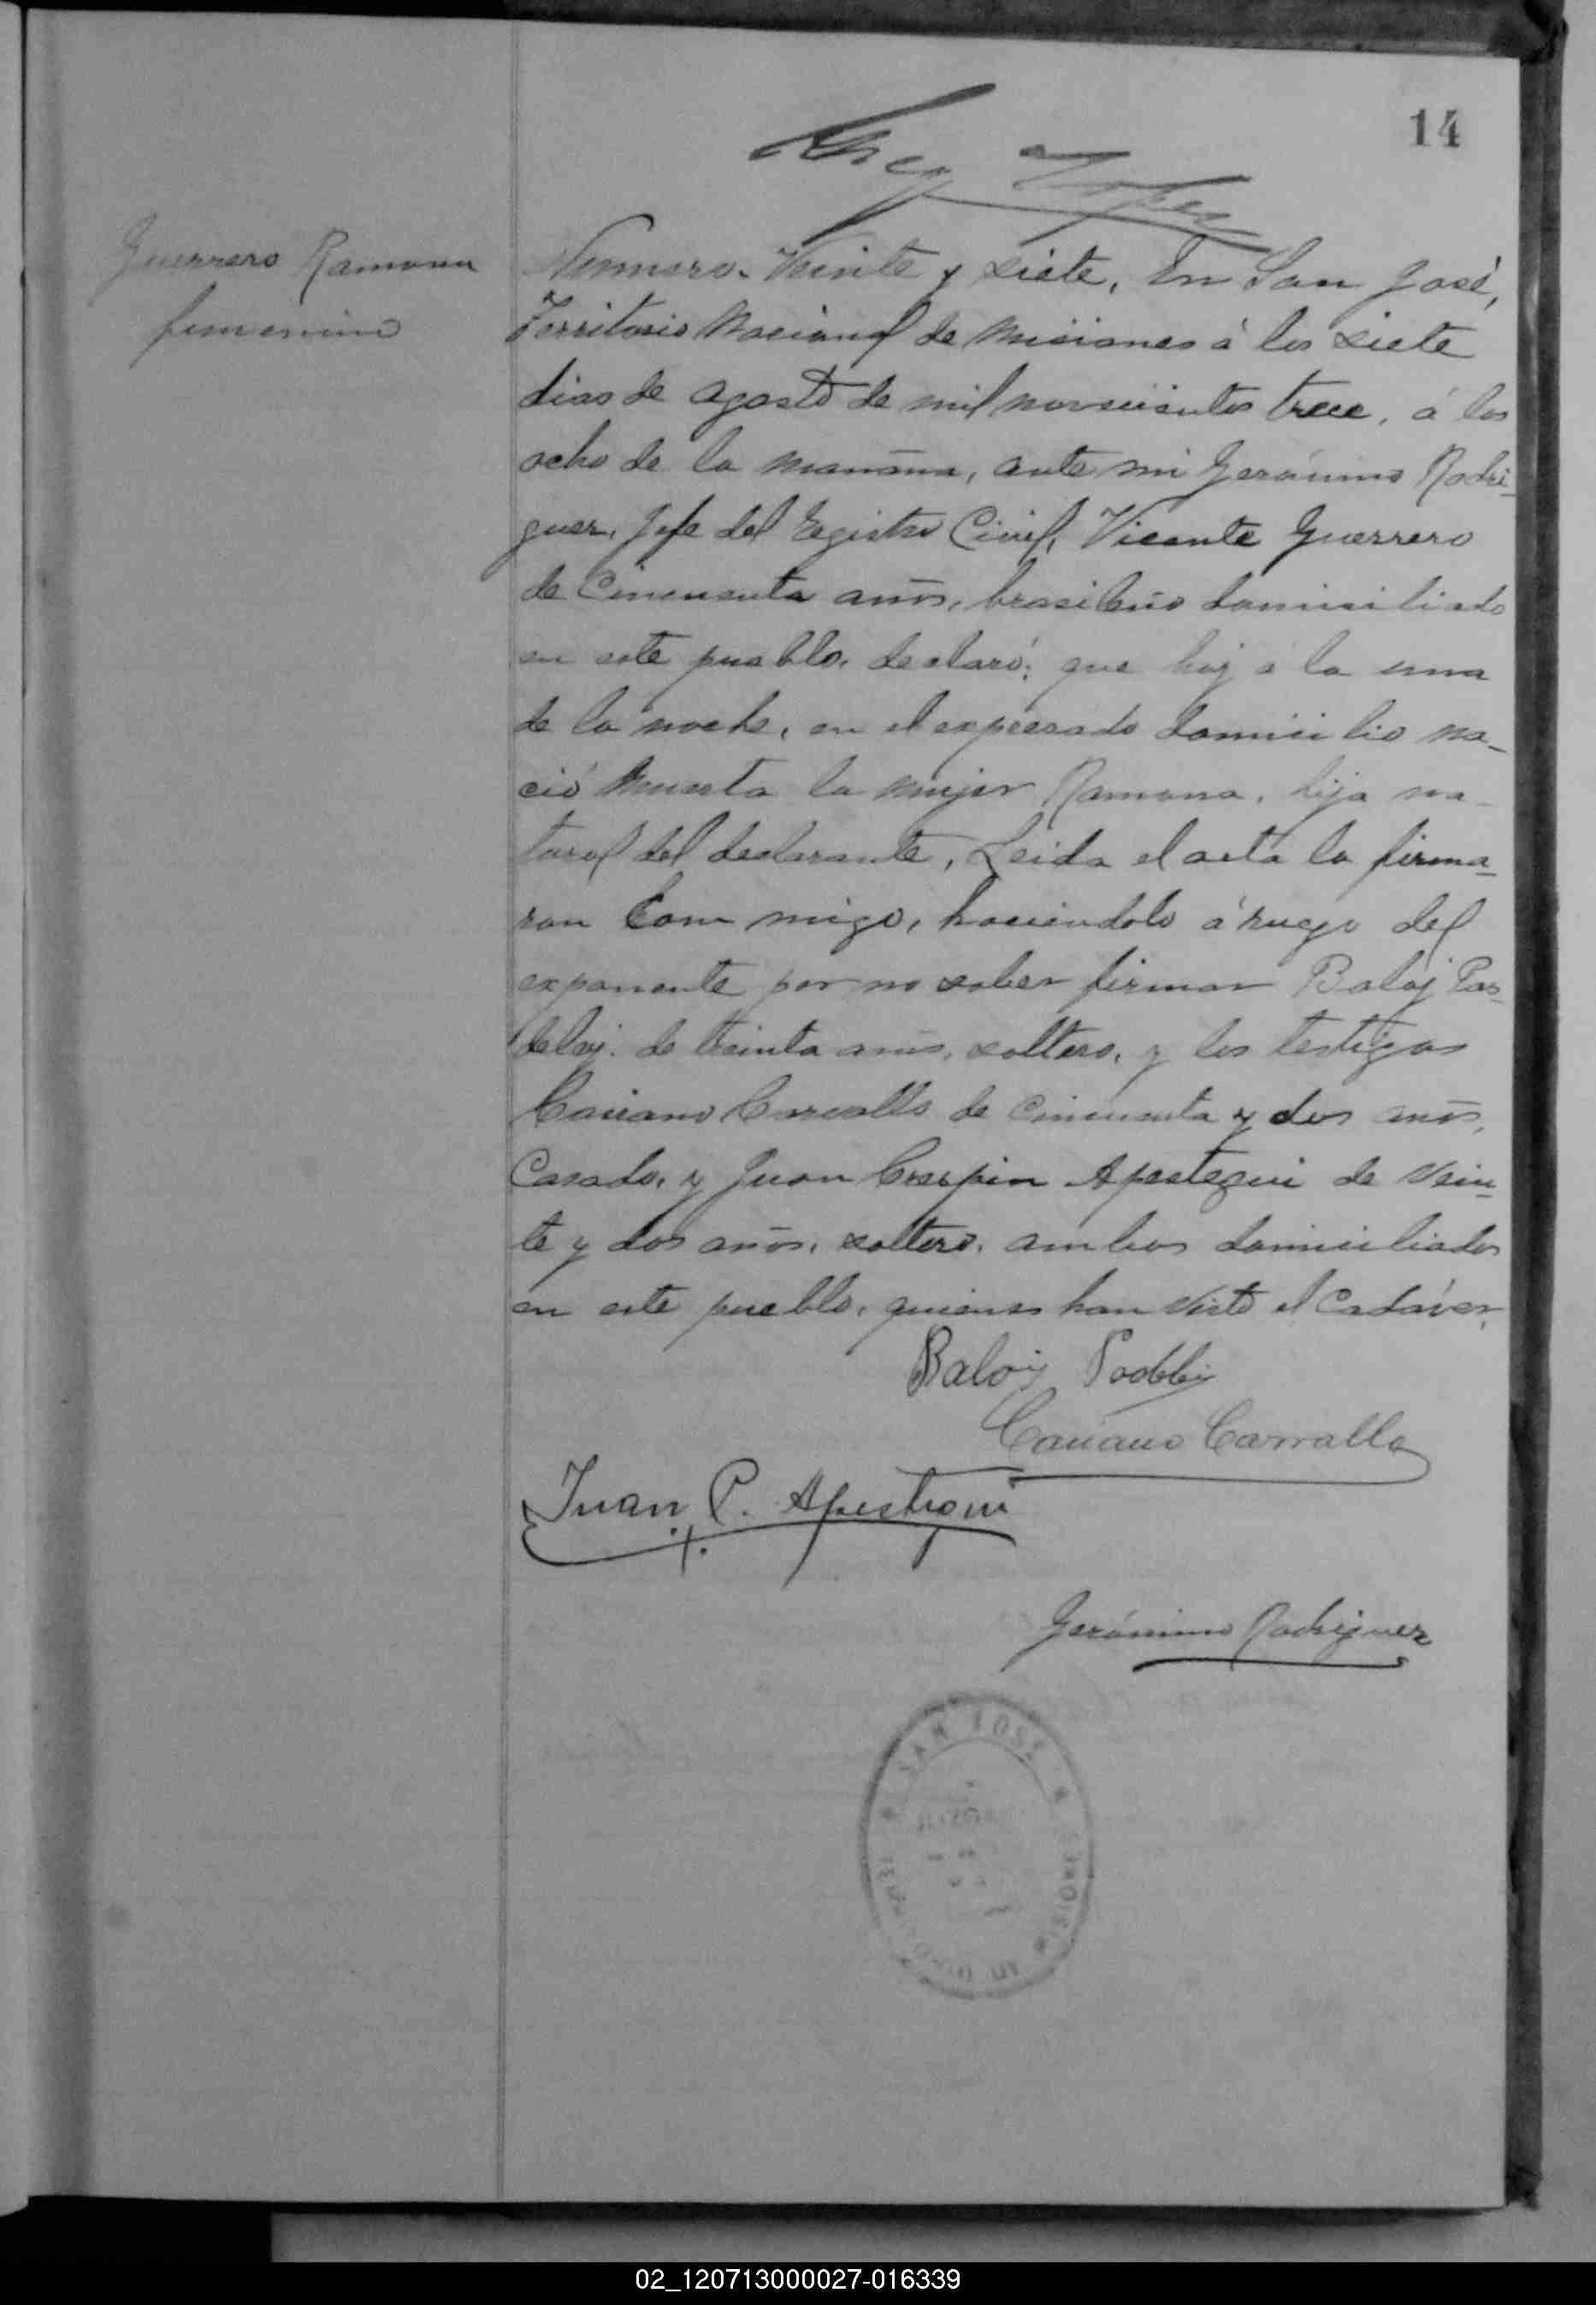 14
Guerrero Ramona
femenino
Numero. Veinte y siete. En San José,
Territorio Nacional de Misiones á los siete
dias de agosto de mil novecientos trece, á las
ocho de la mañana, ante mi Gerónimo Rodri-
guez, Jefe del Registro Civil, Vicente Guerrero
de Cincuenta años, brasileño domiciliado
en este pueblo, declaró; que hoy á la una
de la noche, en el expresado domicilio na-
ció muerta la mujer Ramona, hija na-
tural del declarante, Leida el acta la firma-
ron Con migo, haciendolo á ruego del
exponente por no saber firmar Baloj
de treinta años, soltero, y los testigos
Caciano Carvallo de Cincuenta y dos años,
Casado, y Juan Crespin Apestegui de Vein-
te y dos años, soltero, ambos domiciliados
en este pueblo, quienes han visto el Cadáver.
Baloy
Caciano Carvallo
Juan C. Apestegui
Gerónimo Rodriguez
SAN JOSE
MISIONES
02_120713000027-016339